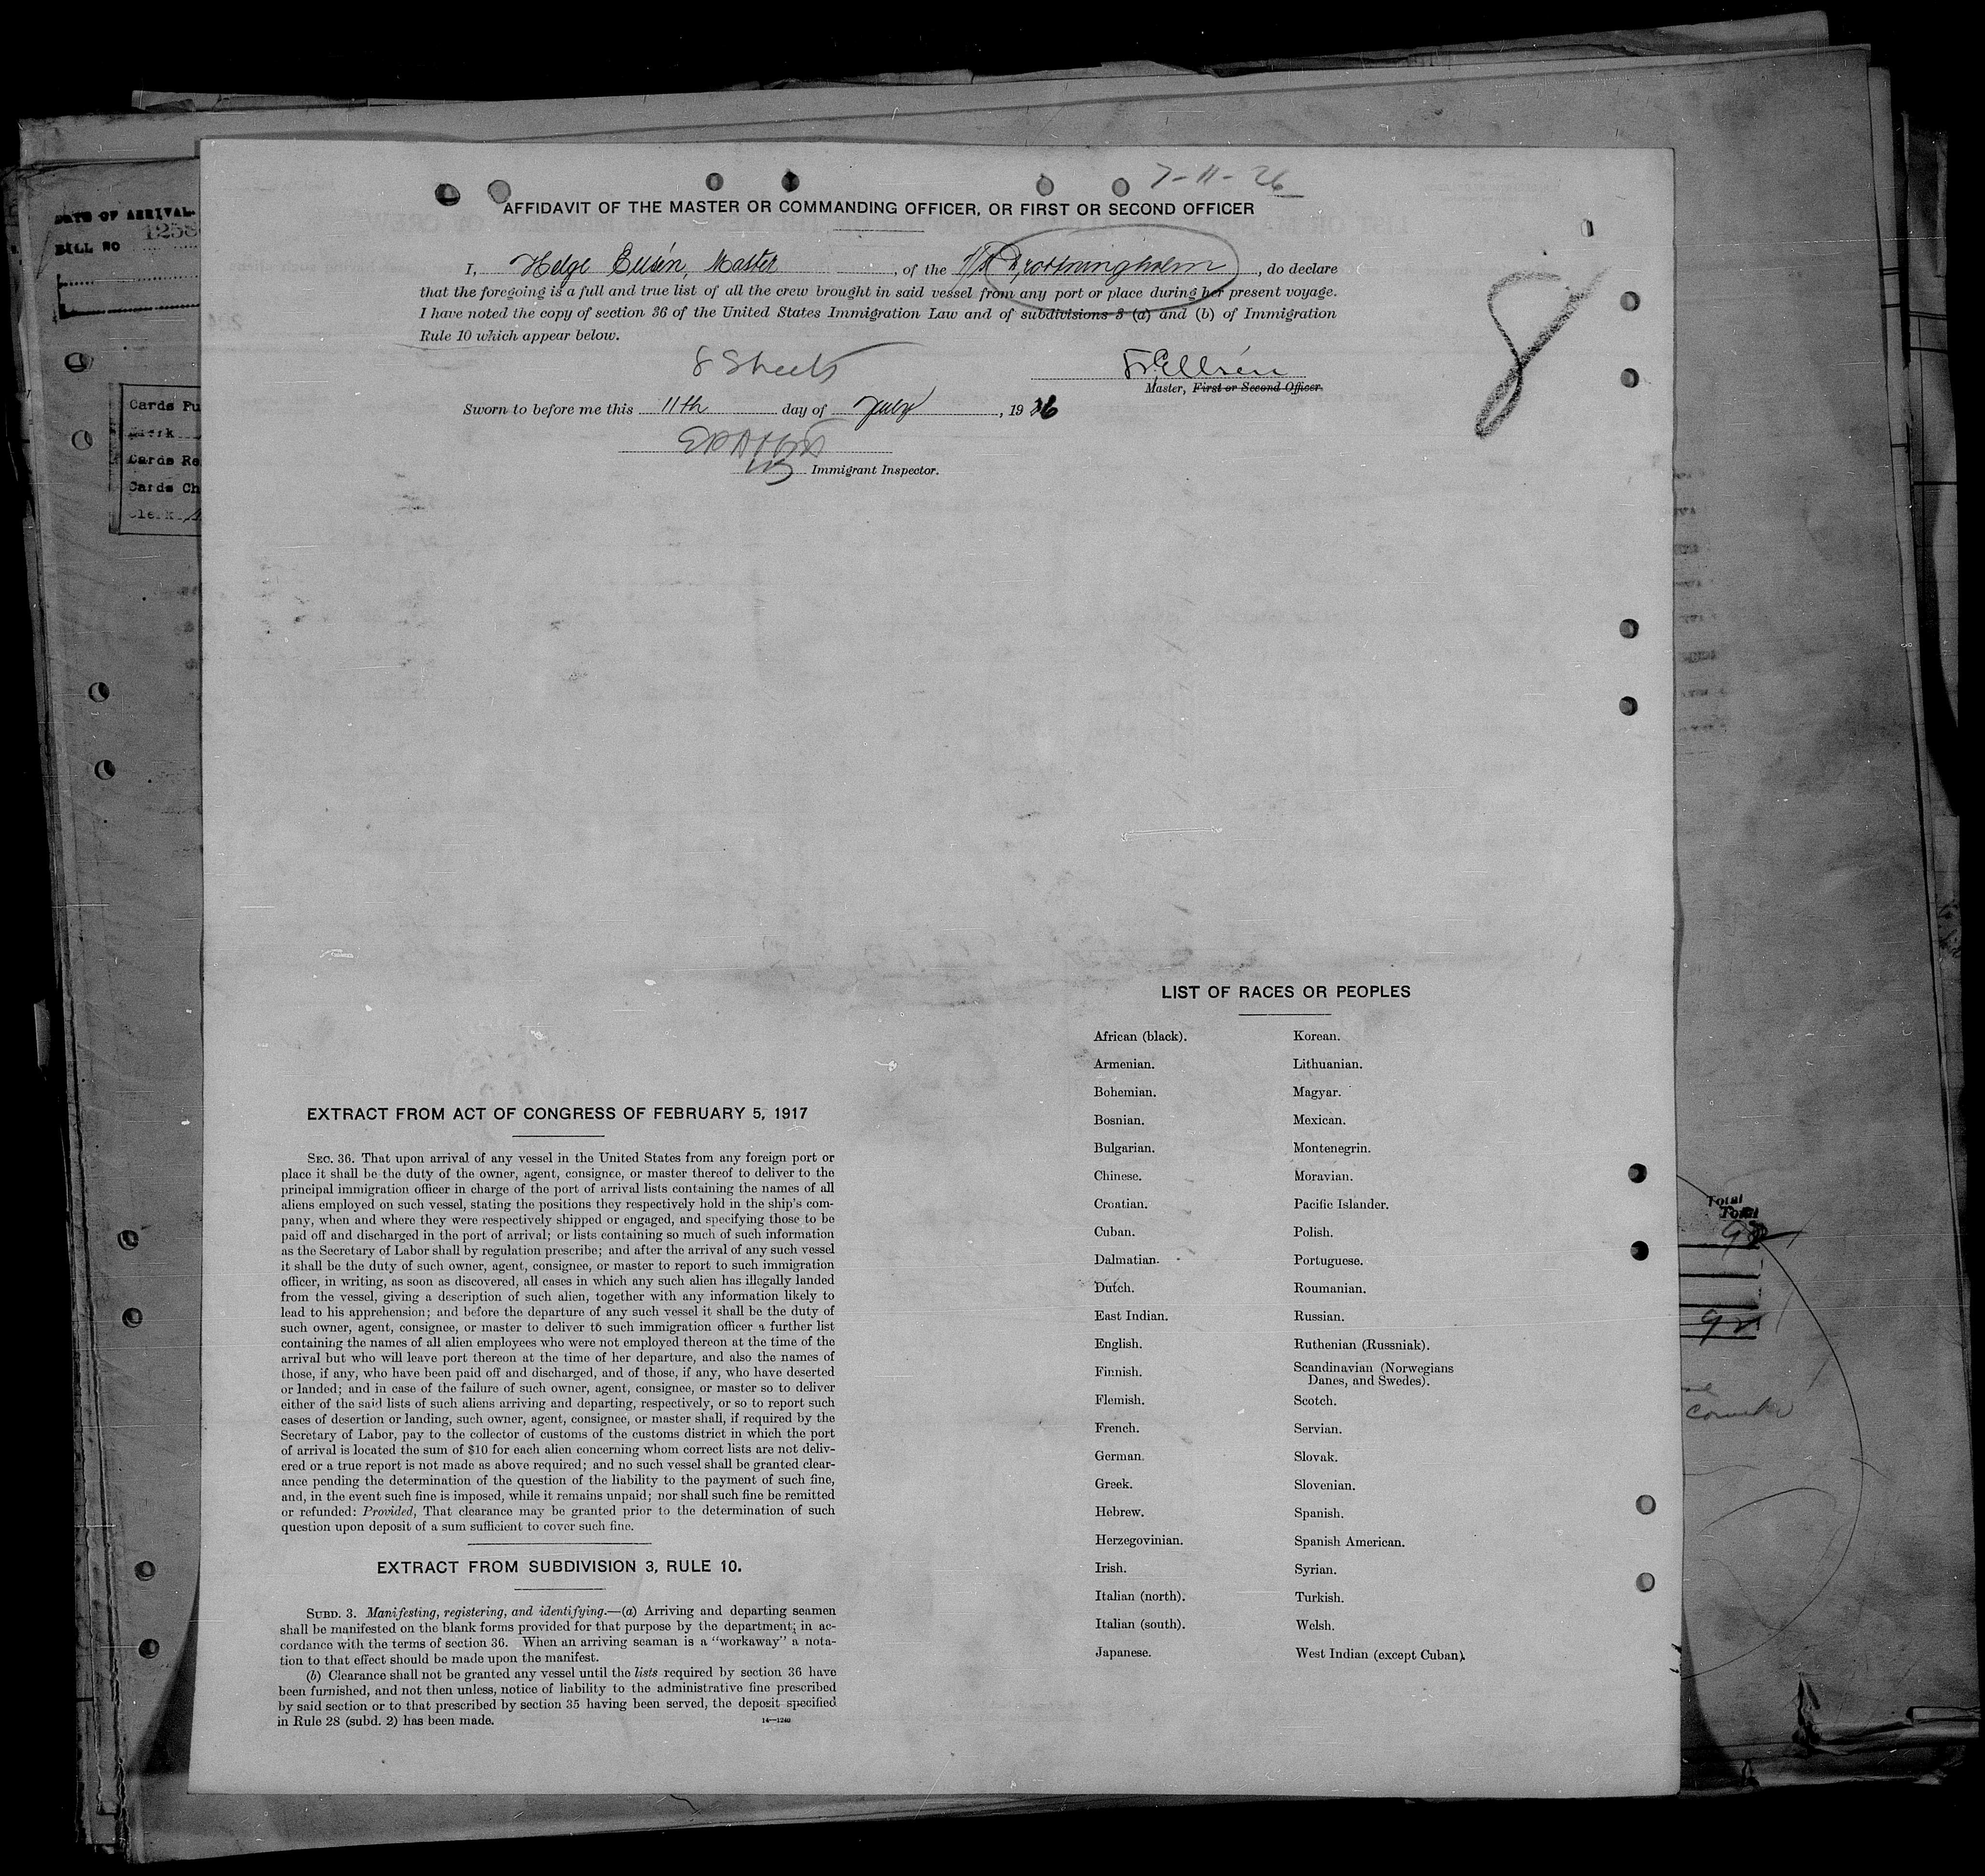 7-11-26
AFFIDAVIT OF THE MASTER OR COMMANDING OFFICER, OR FIRST OR SECOND OFFICER
I, Helge Ellsén, Master, of the Drottningholm, do declare
that the foregoing is a full and true list of all the crew brought in said vessel from any port or place during her present voyage.
I have noted the copy of section 36 of the United States Immigration Law and of subdivisions 3 (a) and (b) of Immigration
Rule 10 which appear below.
8 Sheets
8
Master, First or Second Officer.
Sworn to before me this 11th day of July, 1926
Immigrant Inspector.
DATE OF ARRIVAL
BILL NO 1258
Cards Fu
Clerk
Cards Re
Cards Ch
Clerk
LIST OF RACES OR PEOPLES
African (black).
Armenian.
Bohemian.
Bosnian.
Bulgarian.
Chinese.
Croatian.
Cuban.
Dalmatian.
Dutch.
East Indian.
English.
Finnish.
Flemish.
French.
German.
Greek.
Hebrew.
Herzegovinian.
Irish.
Italian (north).
Italian (south).
Japanese.
Korean.
Lithuanian.
Magyar.
Mexican.
Montenegrin.
Moravian.
Pacific Islander.
Polish.
Portuguese.
Roumanian.
Russian.
Ruthenian (Russniak).
Scandinavian (Norwegians
Danes, and Swedes).
Scotch.
Servian.
Slovak.
Slovenian.
Spanish.
Spanish American.
Syrian.
Turkish.
Welsh.
West Indian (except Cuban).
EXTRACT FROM ACT OF CONGRESS OF FEBRUARY 5, 1917
SEC. 36. That upon arrival of any vessel in the United States from any foreign port or
place it shall be the duty of the owner, agent, consignee, or master thereof to deliver to the
principal immigration officer in charge of the port of arrival lists containing the names of all
aliens employed on such vessel, stating the positions they respectively hold in the ship's com-
pany, when and where they were respectively shipped or engaged, and specifying those to be
paid off and discharged in the port of arrival; or lists containing so much of such information
as the Secretary of Labor shall by regulation prescribe; and after the arrival of any such vessel
it shall be the duty of such owner, agent, consignee, or master to report to such immigration
officer, in writing, as soon as discovered, all cases in which any such alien has illegally landed
from the vessel, giving a description of such alien, together with any information likely to
lead to his apprehension; and before the departure of any such vessel it shall be the duty of
such owner, agent, consignee, or master to deliver to such immigration officer a further list
containing the names of all alien employees who were not employed thereon at the time of the
arrival but who will leave port thereon at the time of her departure, and also the names of
those, if any, who have been paid off and discharged, and of those, if any, who have deserted
or landed; and in case of the failure of such owner, agent, consignee, or master so to deliver
either of the said lists of such aliens arriving and departing, respectively, or so to report such
cases of desertion or landing, such owner, agent, consignee, or master shall, if required by the
Secretary of Labor, pay to the collector of customs of the customs district in which the port
of arrival is located the sum of $10 for each alien concerning whom correct lists are not deliv-
ered or a true report is not made as above required; and no such vessel shall be granted clear-
ance pending the determination of the question of the liability to the payment of such fine,
and, in the event such fine is imposed, while it remains unpaid; nor shall such fine be remitted
or refunded: Provided, That clearance may be granted prior to the determination of such
question upon deposit of a sum sufficient to cover such fine.
EXTRACT FROM SUBDIVISION 3, RULE 10.
SUBD. 3. Manifesting, registering, and identifying.—(a) Arriving and departing seamen
shall be manifested on the blank forms provided for that purpose by the department, in ac-
cordance with the terms of section 36. When an arriving seaman is a "workaway" a nota-
tion to that effect should be made upon the manifest.
(b) Clearance shall not be granted any vessel until the lists required by section 36 have
been furnished, and not then unless, notice of liability to the administrative fine prescribed
by said section or to that prescribed by section 35 having been served, the deposit specified
in Rule 28 (subd. 2) has been made.
14—1240
Total
Total